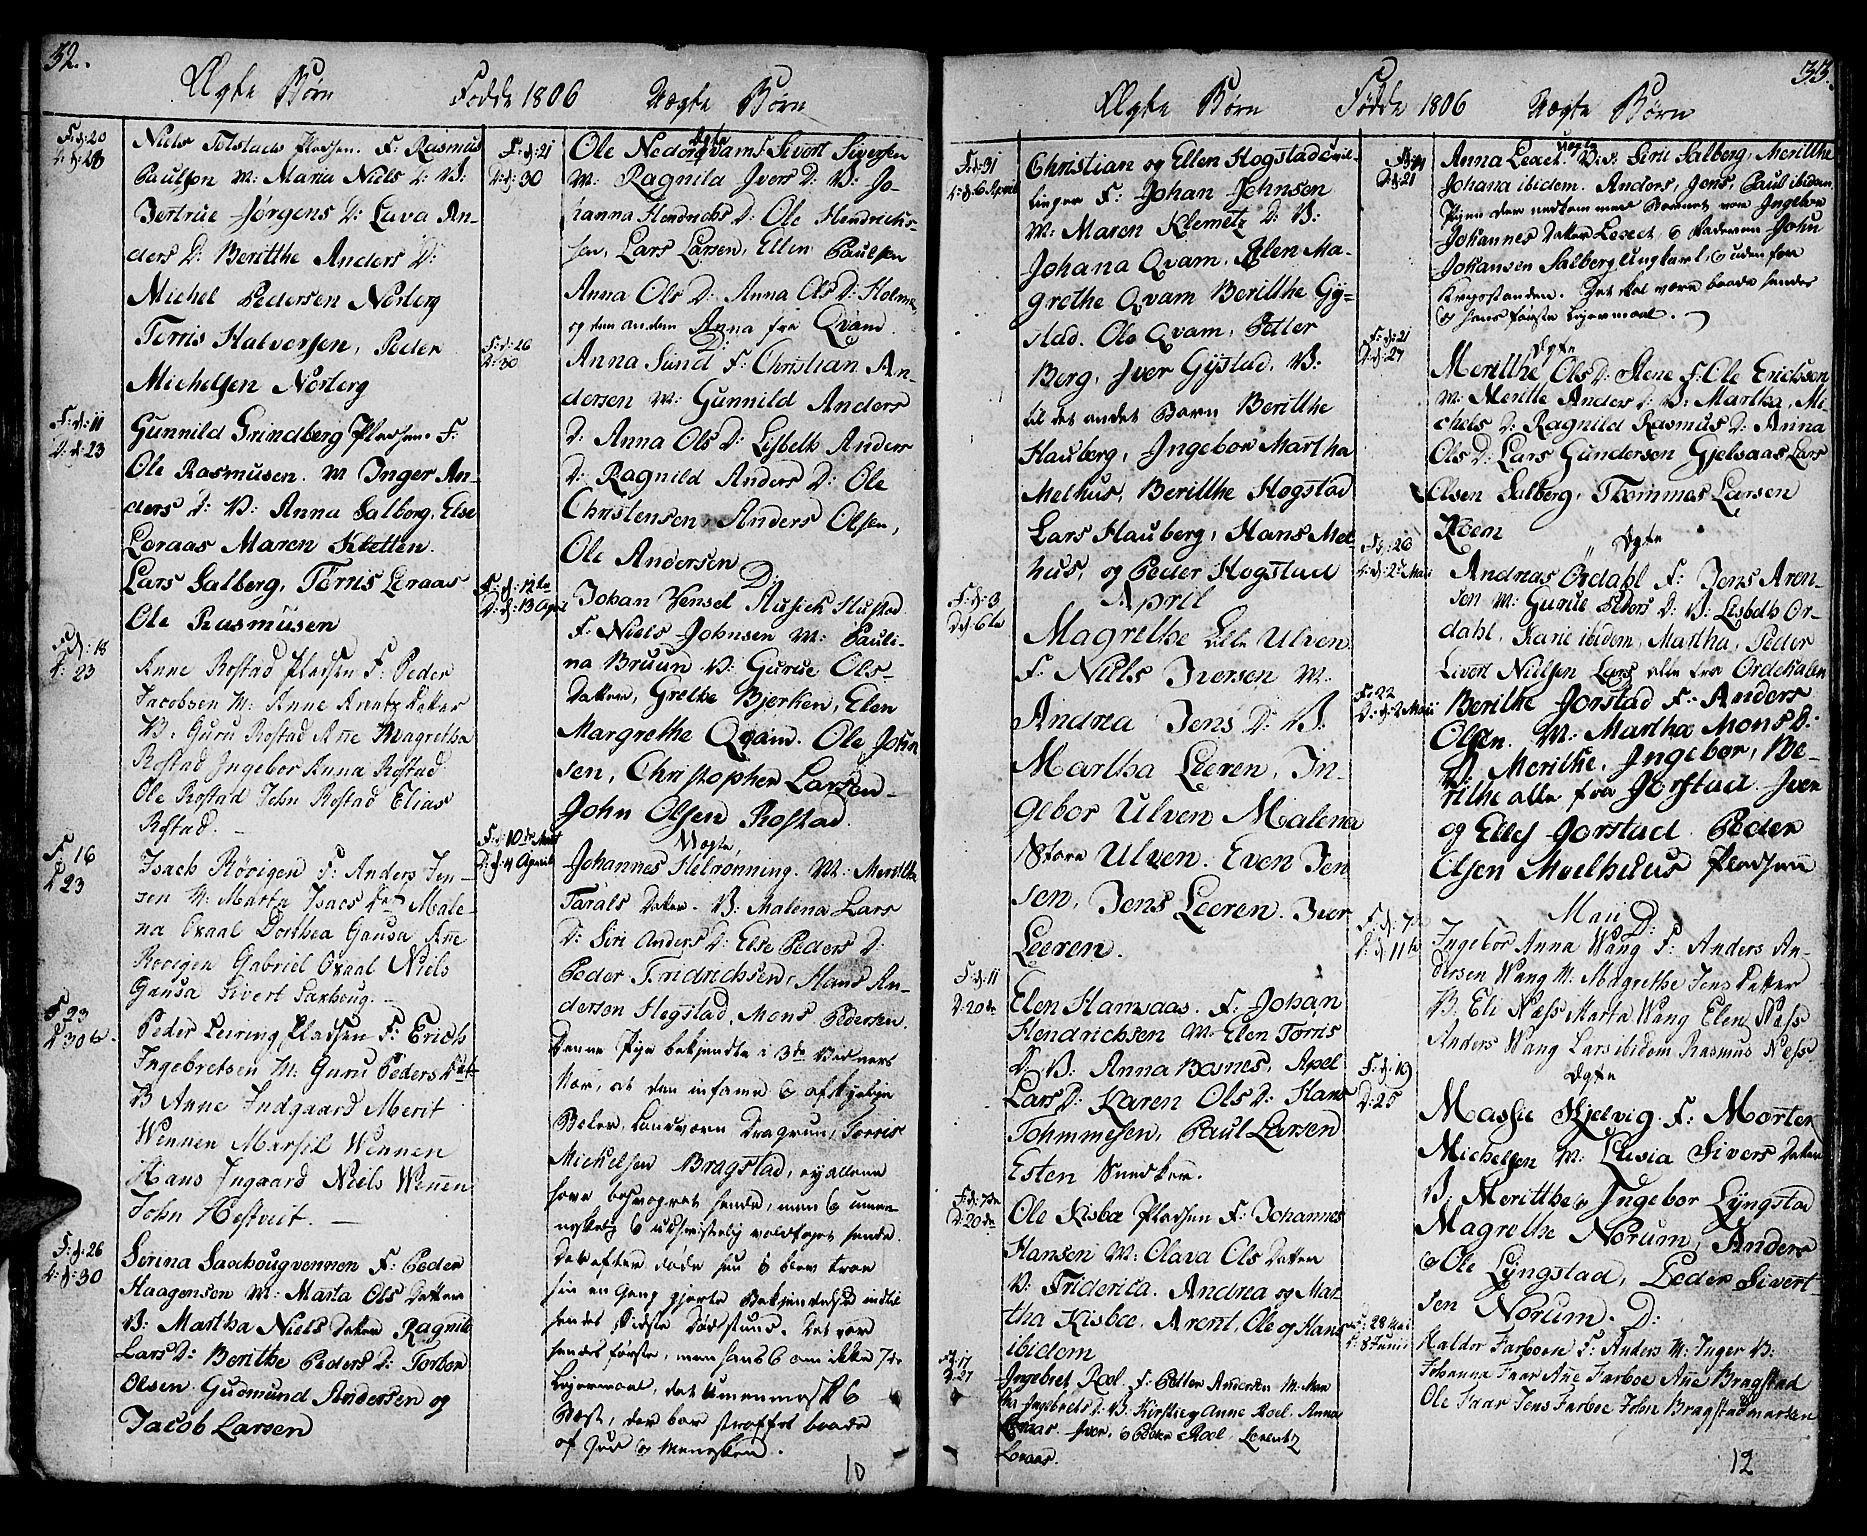 32.
Ægte Børn Fødde 1806 Uægte Børn
F: d: 20
D: d: 23
Niels Tolstads Pladsen. F: Rasmus
Paulsen M: Maria Niels D: V:
Jertrue Jørgens D: Lava An-
ders D: Beritthe Anders D:
Michel Pedersen Norberg
Torris Halvorsen, Peder
Michelsen Norberg
F: d: 11
D: d: 23
Gunnild Grindberg Pladsen. F:
Ole Rasmusen. M Inger An-
ders D: V: Anna Salberg, Else
Leraas Maren Kletten.
Lars Salberg, Torris Leraas
Ole Rasmusen
F: d: 18
D: 23
Anne Rostad Pladsen F: Peder
Jacobsen M: Anne Arentz Datter
V. Guru Rostad Añe Magretha
Rostad Ingebor Anna Rostad
Ole Rostad John Rostad Elias
Rostad.
F 16
D 23
Isach Røvigen F: Anders Jen-
sen M: Marta Isacs Dat Male-
na Oxaal Dorthea Gausa Añe
Røvigen Gabriel Oxaal Niels
Gausa Sivert Saxhoug.
F 23
D 30te
Peder Leiring Pladsen F: Erich
Ingebretsen M: Guru Peders Dat
V Anne Indgaard Merit
Wennen Marsil Wennen
Hans Ingaard Niels Weñen
John Hestveit.
F: d: 26
D: d: 30
Serina Saxhougvennen F: Peder
Haagensen M: Marta Ols Datter
V: Martha Niels Datter Ragnil
Lars D: Berithe Peders D: Torber
Olsen Gudmund Andersen og
Jacob Larsen
F: d: 21
D: d: 30
Ægte
Ole Nedong Qvam F Sivert Siversen
M: Ragnild Ivers D: V: Jo-
hanna Hendrichs D: Ole Hendrichs-
sen, Lars Larsen, Ellen Paulsen
Anna Ols D: Anna Ols D: Holme
og den anden Anna fra Qvam
F: d: 26
D: 30
Anna Sund F: Christian An-
dersen M: Gunnild Anders
D: Anna Ols D: Lisbeth Anders
D: Ragnild Anders D: Ole
Christensen, Anders Olsen,
Ole Andersen
F: d: 12te
D: d: 13 April
Johan Vensel Hustad
F: Niels Johnsen M: Pauli-
na Bruun V: Gurue Ols-
Datter, Grethe Bjerken, Elen
Margrethe Qvam. Ole John
sen, Christopher Larsen
John Olsen Rostad.
Uægte
F: d: 10de Mart
D: d: 4 April
Johannes Helrønning. M: Meritthe
Tarals Datter. V: Malena Lars
D: Siri Anders D: Else Peders D:
Peder Fridrichsen, Hans An-
dersen Hegstad, Mons Pedersen.
Denne Pige bekjendte i 3de Vidners
Nær, at den infame &amp; afskyelige
Boler, Landværn Dragun, Torris
Mickelsen Bragstad, ej allene
have besvogret hende, men &amp; umen-
neskelig &amp; uchristelig voldtaget hende.
Derefter døde hun &amp; blev troe
sin en Gang gjorte Bekjendelse indtil
hendes sidste Dødsstund. Det var
hendes første, men hans 6 om ikke 7de
Leyermaal, det umenneske &amp;
Bæst, der bør straffes baade
af Gud &amp; Mennesken.
10
33.
Ægte Børn Fødde 1806 Uægte Børn
F: d: 31
D: d: 6 April
Christian og Ellen Hogstad tvil-
linger F: Johan Johnsen
M: Maren Klemetz D: V:
Johana Qvam, Elen Ma-
grethe Qvam Berithe Gy-
stad. Ole Qvam, Petter
Berg, Iver Gystad. V:
til det andet Barn Berithe
Hauberg, Ingebor Martha
Melhus, Berithe Hogstad
Lars Hauberg, Hans Mel-
hus, og Peder Hogstad
April
F: d: 3
D: d: 6te
Magrethe Lille Ulven
F. Niels Iversen M:
Andrea Jens D: V:
Martha Leeren, In-
gebor Ulven Malena
Store Ulven. Even Jen
sen, Jens Leeren. Iver
Leeren.
F: d: 11
D: 20de
Elen Hamsaas. F: Johan
Hendrichsen M: Elen Torris
D: V: Anna Bosnes, Axel
Lars D: Karen Ols D: Hans
Tohmmesen, Paul Larsen
Esten Snedker.
F: d: 7de
D: 20de
Ole Kisbæ Pladsen F: Johannes
Hansen M: Olava Ols Datter
V: Friderica. Andrea og Mar-
tha Kisbæ. Arent, Ole og Hans
ibidem
F 17
D 27
Ingebret Roel F: Petter Andersen M: Mar
tha Ingebrets D: V: Kirstie Anne Roel, Anna
Leraas Iver, &amp; Peder Roel, Lorentz
Leraas.
D: 21
Uægte
Anna Lexet. V: s: Siri Salberg, Meritthe
Johana ibidem. Anders, Jons, Paul ibidem
Pigen der nedkom med Barnet var Ingebor
Johannes Datter Lexet &amp; Faderen John
Johansen Salberg ungkarl &amp; uden for
Krigsstanden. Det skal være baade hendes
&amp; hans første Leyermaal.
F: d: 21
D: d: 27
Ægte
Meritthe Ols D: Stene F: Ole Erichsen
M: Meritte Anders D: V: Martha, Mi-
chels D: Ragnild Rasmus D: Anna
Ols D: Lars Gundersen Gjelsaas Lars
Olsen Salberg, Thommas Larsen
Roem
F: 26
D: d: 2d Maii
Ægte
Andreas Ördahl F: Jens Aren-
sen M: Gurue Peders D: V: Lisbeth Or-
dahl, Karie ibidem, Martha, Peder
Sivert Nielsen Lars alle fra Ordahlen
F: 22
D: d: 2 Maii
Berithe Jorstad F: Anders
Olsen. M: Martha Mons D:
V: Merithe, Ingebor, Be-
rithe alle fra Jorstad. Iver
og Elling Jorstad Peder
Olsen Moelhuus Pladsen
Maii
F: d: 7
D: d: 11te
Ingebor Anna Wang F: Anders An-
dersen Wang M: Magrethe Jens Datter
V. Eli Næss Marta Wang Elen Næss
Anders Wang Lars ibidem Rasmus Næss
F: d: 19
D: 25
Ægte
Masse Kjelvig. F: Morten
Michelsen M: Lusia Sivers Datter
V. Meritthe, Ingebor Lyngstad
Magrethe Norum, Anders
&amp; Ole Lyngstad, Peder Sivert-
sen Norum. D:
28 Mai
8 Junii
Haldor Farboen F: Anders M: Inger V:
Johanna Faar Añe Farboe Añe Bragstad
Ole Faar Jens Farboe John Bragstadmarken
12